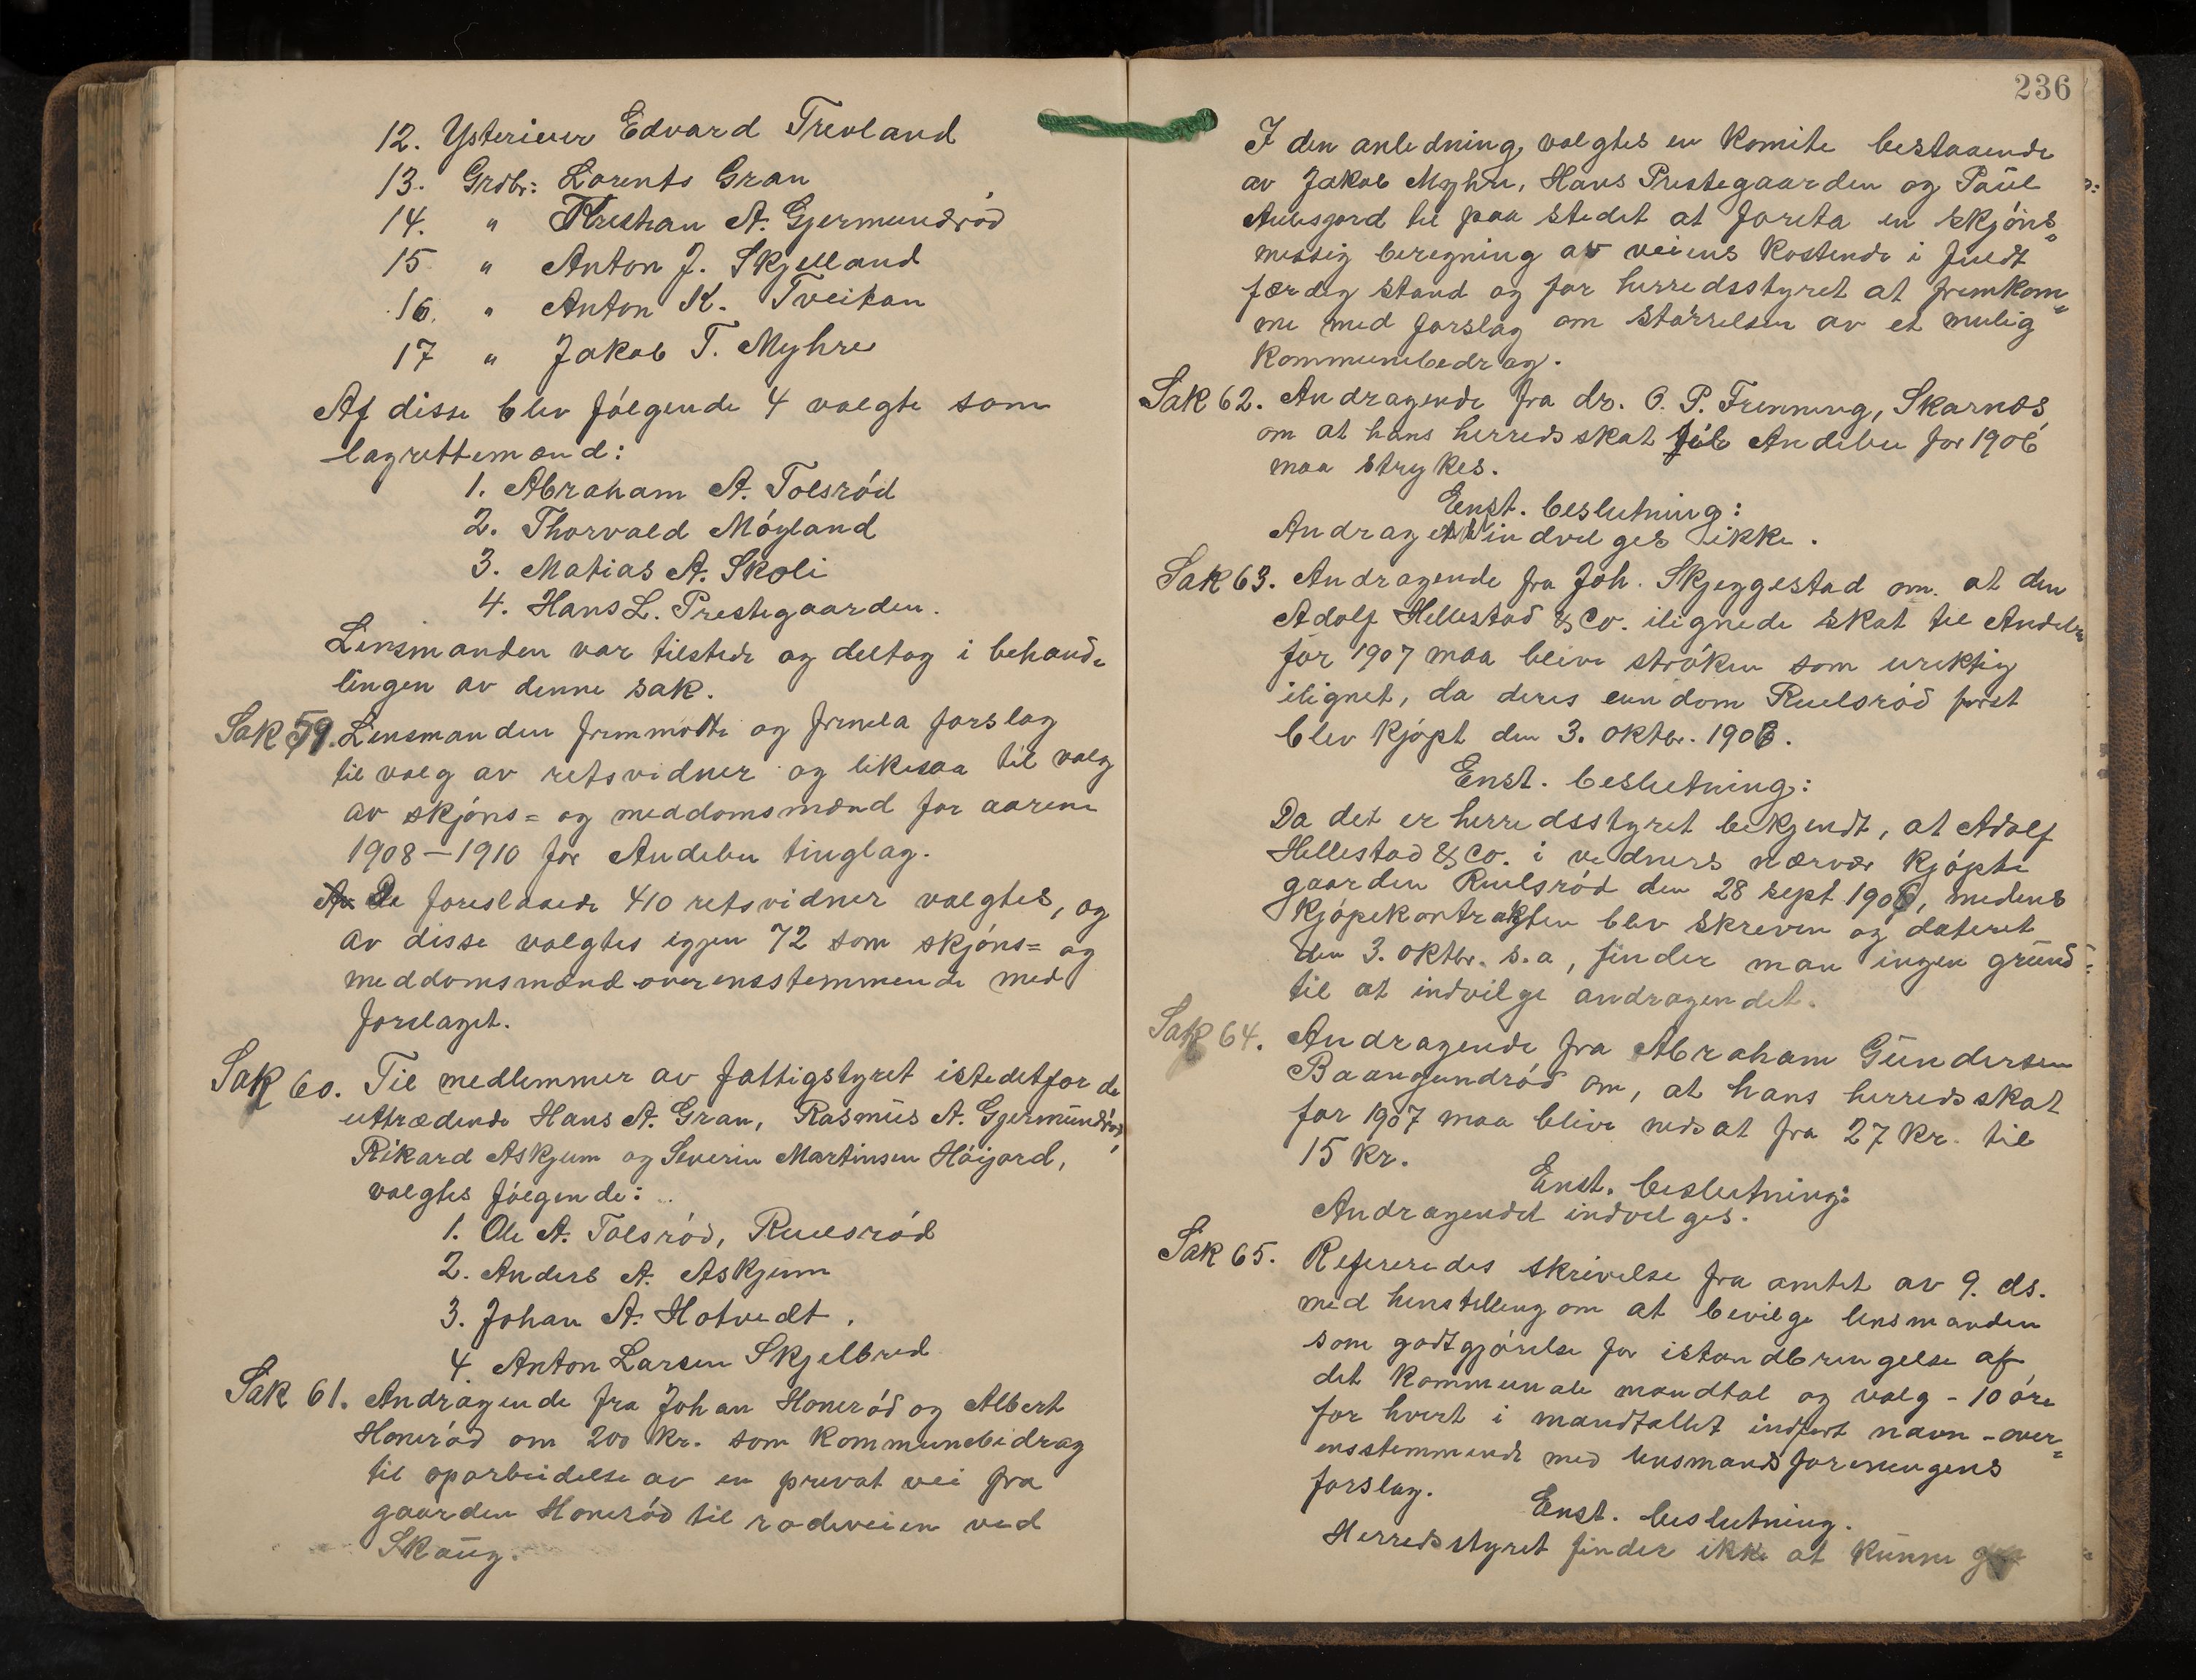 12. Ysterieier Edvard Trevland
13. Grdbr: Lorents Gran
14. " Kristian A. Gjermundrød
15 " Anton J. Skjelland
16. " Anton K. Tveitan
17 " Jakob T. Myhre
Af disse blev følgende 4 valgte som
lagrettemænd:
1. Abraham A. Tolsrød
2. Thorvald Møyland
3. Matias A. Skoli
4. Hans L. Prestegaarden.
Lensmanden var tilstede og deltog i behand-
lingen av denne sak.
Sak 59. Lensmanden fremmøtte og fremla forslag
til valg av retsvidner og likesaa til valg
av skjøns= og meddomsmænd for aarene
1908—1910 for Andebu tinglag.
De foreslaaede 410 retsvidner valgtes, og
av disse valgtes igjen 72 som skjøns= og
meddomsmænd overensstemmende med
forslaget.
Sak 60. Til medlemmer av fattigstyret istedetfor de
uttrædende Hans A. Gran, Rasmus A. Gjermundrød,
Rikard Askjum og Severin Martinsen Høijord,
valgtes følgende:
1. Ole A. Tolsrød, Ruelsrød
2. Anders A. Askjum
3. Johan A. Hotvedt.
4. Anton Larsen Skjelbred
Sak 61. Andragende fra Johan Honerød og Albert
Honerød om 200 kr. som kommunebidrag
til oparbeidelse av en privat vei fra
gaarden Honerød til rodeveien ved
Skaug.
236
I den anledning valgtes en komite bestaaende
av Jakob Myhre, Hans Prestegaarden og Paul
Aulesgord til paa stedet at foreta en skjøns=
messig beregning av veiens kostende i fuldt
færdig stand og for herredsstyret at fremkom=
me med forslag om størrelsen av et mulig
kommunebedrag.
Sak 62. Andragende fra dr. O. P. Frenning, Skarnæs,
om at hans herredsskat til Andebu for 1906
maa strykes.
Enst. beslutning:
Andraget indvilges ikke.
Sak 63. Andragende fra Joh. Skjeggestad om at den
Adolf Hellestad & Co. ilignede skat til Andebu
for 1907 maa blive strøken som uriktig
ilignet, da deres eiendom Ruelsrød først
blev kjøpt den 3. oktbr. 1906.
Enst. beslutning:
Da det er herredsstyret bekjendt, at Adolf
Hellestad & Co. i vidners nærvær kjøpte
gaarden Ruelsrød den 28 sept 1906, medens
kjøpekontrakten blev skreven og dateret
den 3. oktbr. s.a, finder man ingen grund
til at indvilge andragendet.
Sak 64. Andragende fra Abraham Gundersen
Baangundrød om, at hans herredsskat
for 1907 maa blive nedsat fra 27 kr. til
15 kr.
Enst. beslutning:
Andragendet indvilges.
Sak 65. Refereredes skrivelse fra amtet av 9. ds.
med henstilling om at bevilge lensmanden
som godtgjørelse for istandbringelse af
det kommunale mandtal og valg - 10 øre
for hvert i mandtallet indført navn - over=
ensstemmende med lensmandsforeningens
forslag.
Enst. beslutning.
Herredsstyret finder ikke at kunne